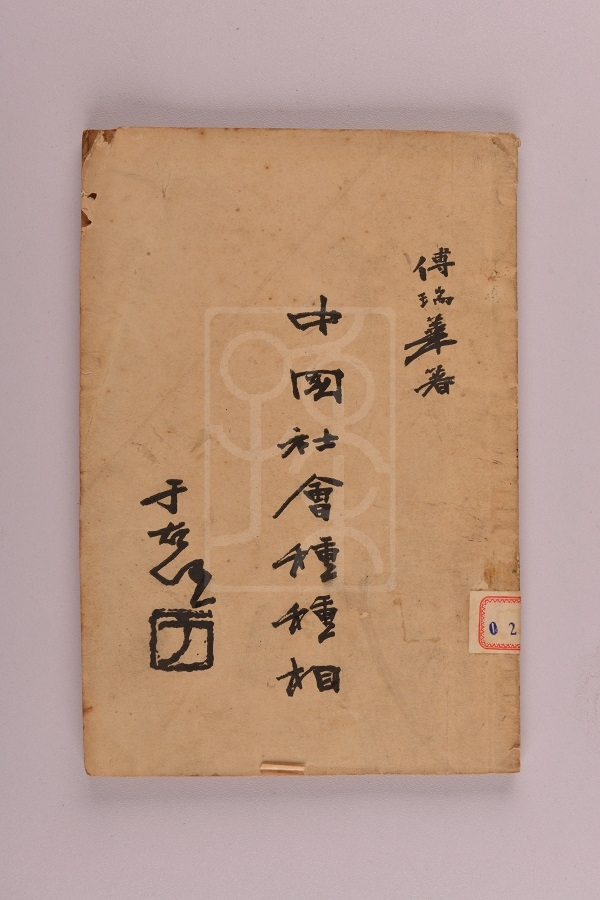 傅瑞華箸
中國社會種種相
于右任
0 2